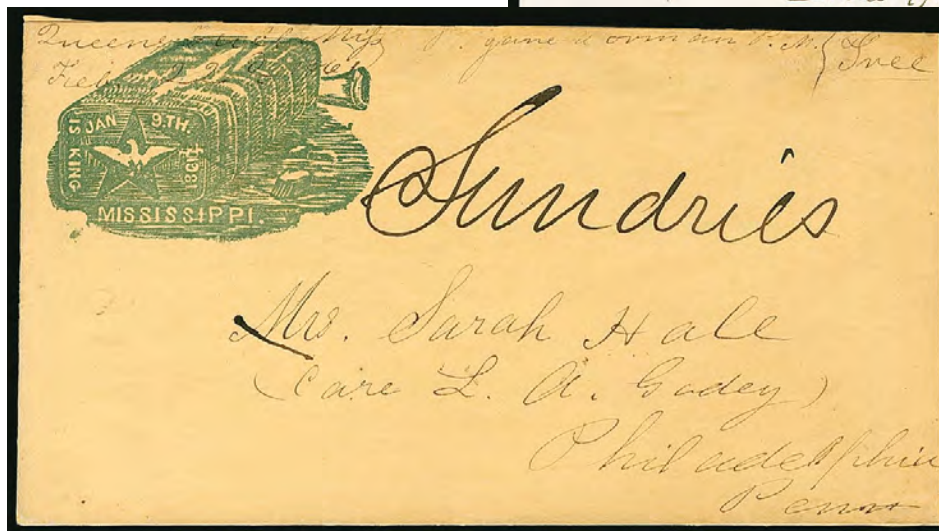 Queens Miss P. M. Free
IS KING JAN 9TH. 1861
MISSISSIPPI.
Sundries
Mrs. Sarah Hale
(Care L. A. Godey)
Philadelphia
Penn